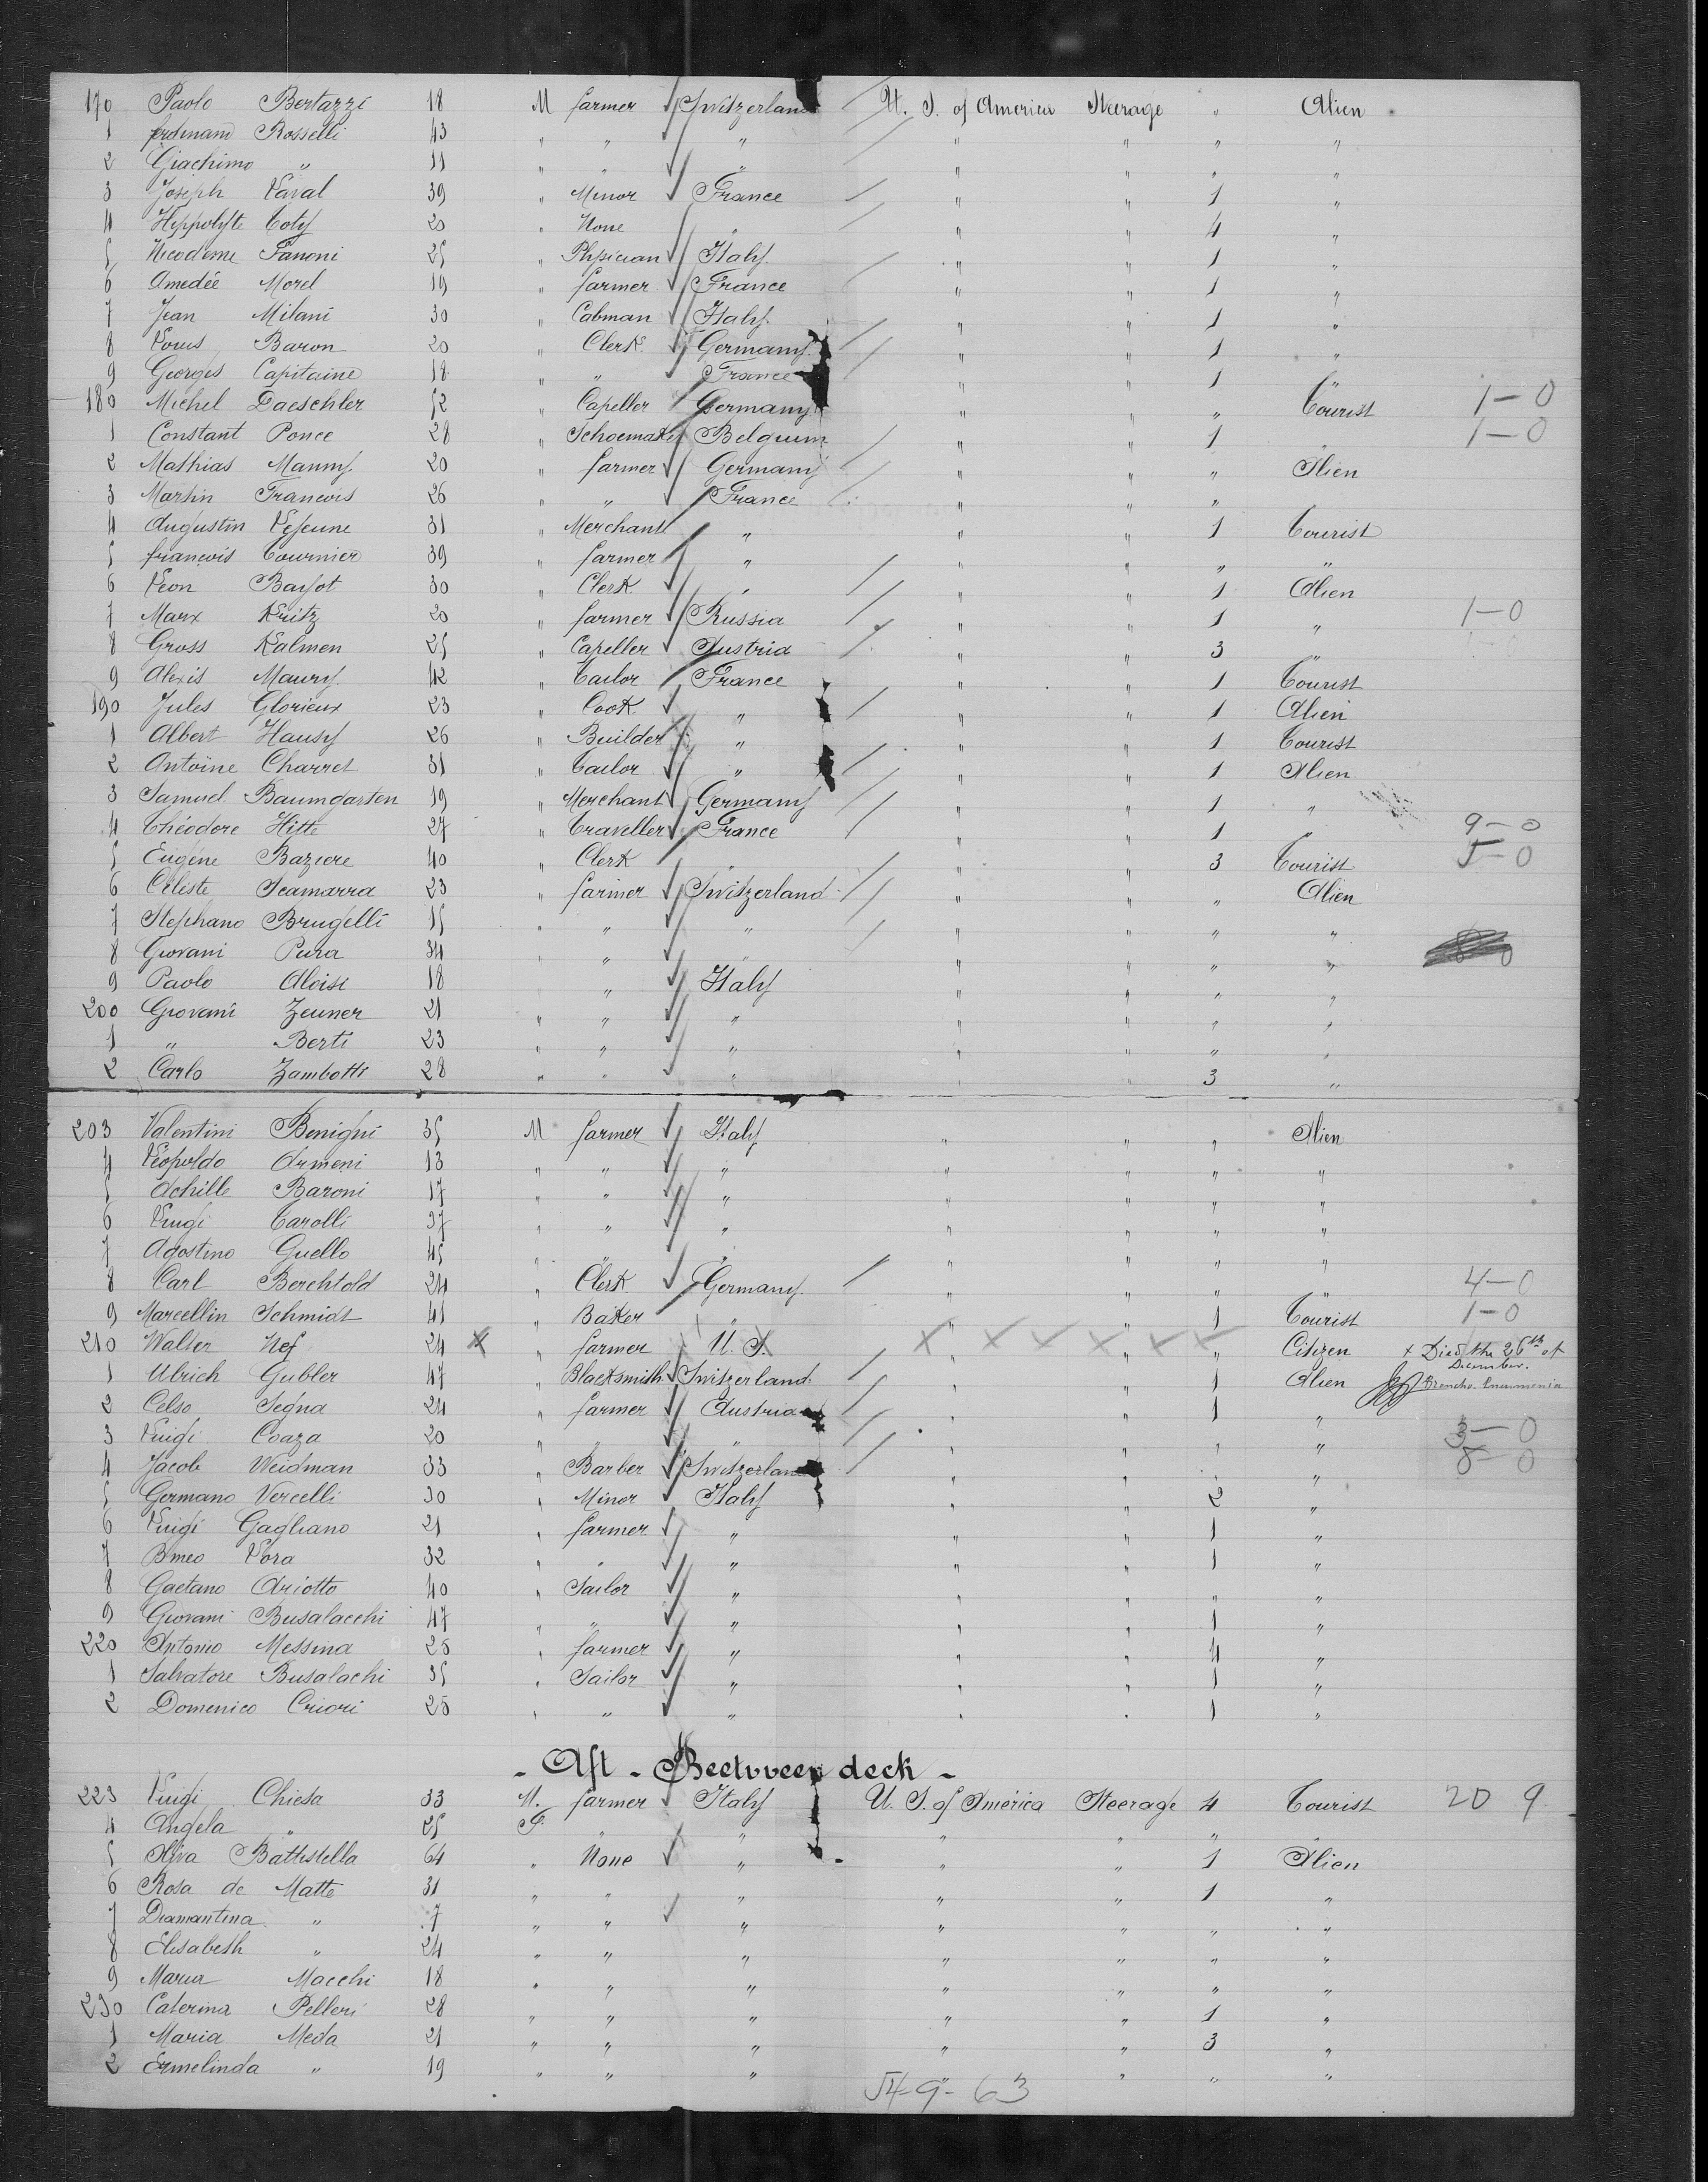 170 Paolo Bertazzi 18 M farmer Switzerland U. S. of America Steerage " Alien
1 ferdinand Rosselli 43 " " " " " " "
2 Giachimo " 11 " " " " " " "
3 Joseph Laval 39 " Minor France " " 1 "
4 Hippolyte Coty 20 " None " " " 4 "
5 Nicodeme Fanoni 25 " Physician Italy " " 1 "
6 Amedée Morel 19 " farmer France " " 1 "
7 Jean Milani 30 " Cabman Italy " " 1 "
8 Louis Baron 20 " Clerk Germany " " 1 "
9 Georges Capitaine 18 " " France " " 1 "
180 Michel Daeschler 52 " Capeller Germany " " " Tourist 1-0
1 Constant Ponce 28 " Schoemaker Belgium " " 1 " 1-0
2 Mathias Manny 20 " farmer Germany " " " Alien
3 Martin Francois 26 " " France " " "
4 Augustin Lejeune 31 " Merchant " " " 1 Tourist
5 francois Tournier 39 " farmer " " " " "
6 Leon Bayot 30 " Clerk " " " 1 Alien
7 Marx Kritz 20 " farmer Russia " " 1 " 1-0
8 Gross Kalmen 25 " Capeller Austria " " 3 "
9 Alexis Maury 42 " Tailor France " " 1 Tourist
190 Jules Glorieux 23 " Cook " " " 1 Alien
1 Albert Hausy 26 " Builder " " " 1 Tourist
2 Antoine Charret 31 " Tailor " " " 1 Alien
3 Samuel Baumgarten 19 " Merchant Germany " " 1 "
4 Théodore Hitte 27 " Traveller France " " 1 9-0
5 Eugéne Baziere 40 " Clerk " " " 3 Tourist 5-0
6 Celiste Scamarra 23 " farmer Switzerland " " " Alien
7 Stephano Brugelli 15 " " " " " " "
8 Giovani Pura 34 " " " " " " "
9 Paolo Aloisi 18 " Italy " " " "
200 Giovani Zeuner 21 " " " " " " "
1 " Berti 23 " " " " " " "
2 Carlo Zambotti 28 " " " " " 3 "
203 Valentini Benigni 35 M farmer Italy " " " Alien
4 Leopoldo Armeni 13 " " " " " " "
5 Achille Baroni 17 " " " " " " "
6 Luigi Tarolli 37 " " " " " " "
7 Agostino Guello 45 " " " " " " "
8 Carl Berchtold 24 " Clerk Germany " " " " 4-0
9 Marcellin Schmidt 41 " Baker " " " 1 Tourist 1-0
210 Walter Nef 24 x " farmer U. S. " " " Citizen x Died the 26th of December.
1 Ulrich Gubler 47 " Blacksmith Switzerland " " 1 Alien Broncho-Pneumonia
2 Celso Segna 24 " farmer Austria " " 1 "
3 Luigi Coaza 20 " " " " " " " 3-0
4 Jacob Weidman 33 " Barber Switzerland " " " " 8-0
5 Germano Vercelli 30 " Minor Italy " " 2 "
6 Luigi Gagliano 21 " farmer " " " 1 "
7 Bmeo Lora 32 " " " " " 1 "
8 Gaetano Ariotto 40 " Sailor " " " " "
9 Giovani Busalacchi 47 " " " " " 1 "
220 Antonio Messina 25 " farmer " " " 4 "
1 Salvatore Busalachi 35 " Sailor " " " 1 "
2 Domenico Criori 25 " " " " " 1 "
- Aft - Beetween deck -
223 Luigi Chiesa 33 M. farmer Italy U. S. of America Steerage 4 Tourist 20 9
4 Angela " 25 F. " " " " " "
5 Oliva Battistella 64 " None " " " 1 Alien
6 Rosa de Matte 31 " " " " " 1 "
7 Diamantina " 7 " " " " " " "
8 Elisabeth " 24 " " " " " " "
9 Maria Macchi 18 " " " " " " "
230 Caterina Pelleri 28 " " " " " 1 "
1 Maria Meda 21 " " " " " 3 "
2 Ermelinda " 19 " " " " " " "
54-9-63